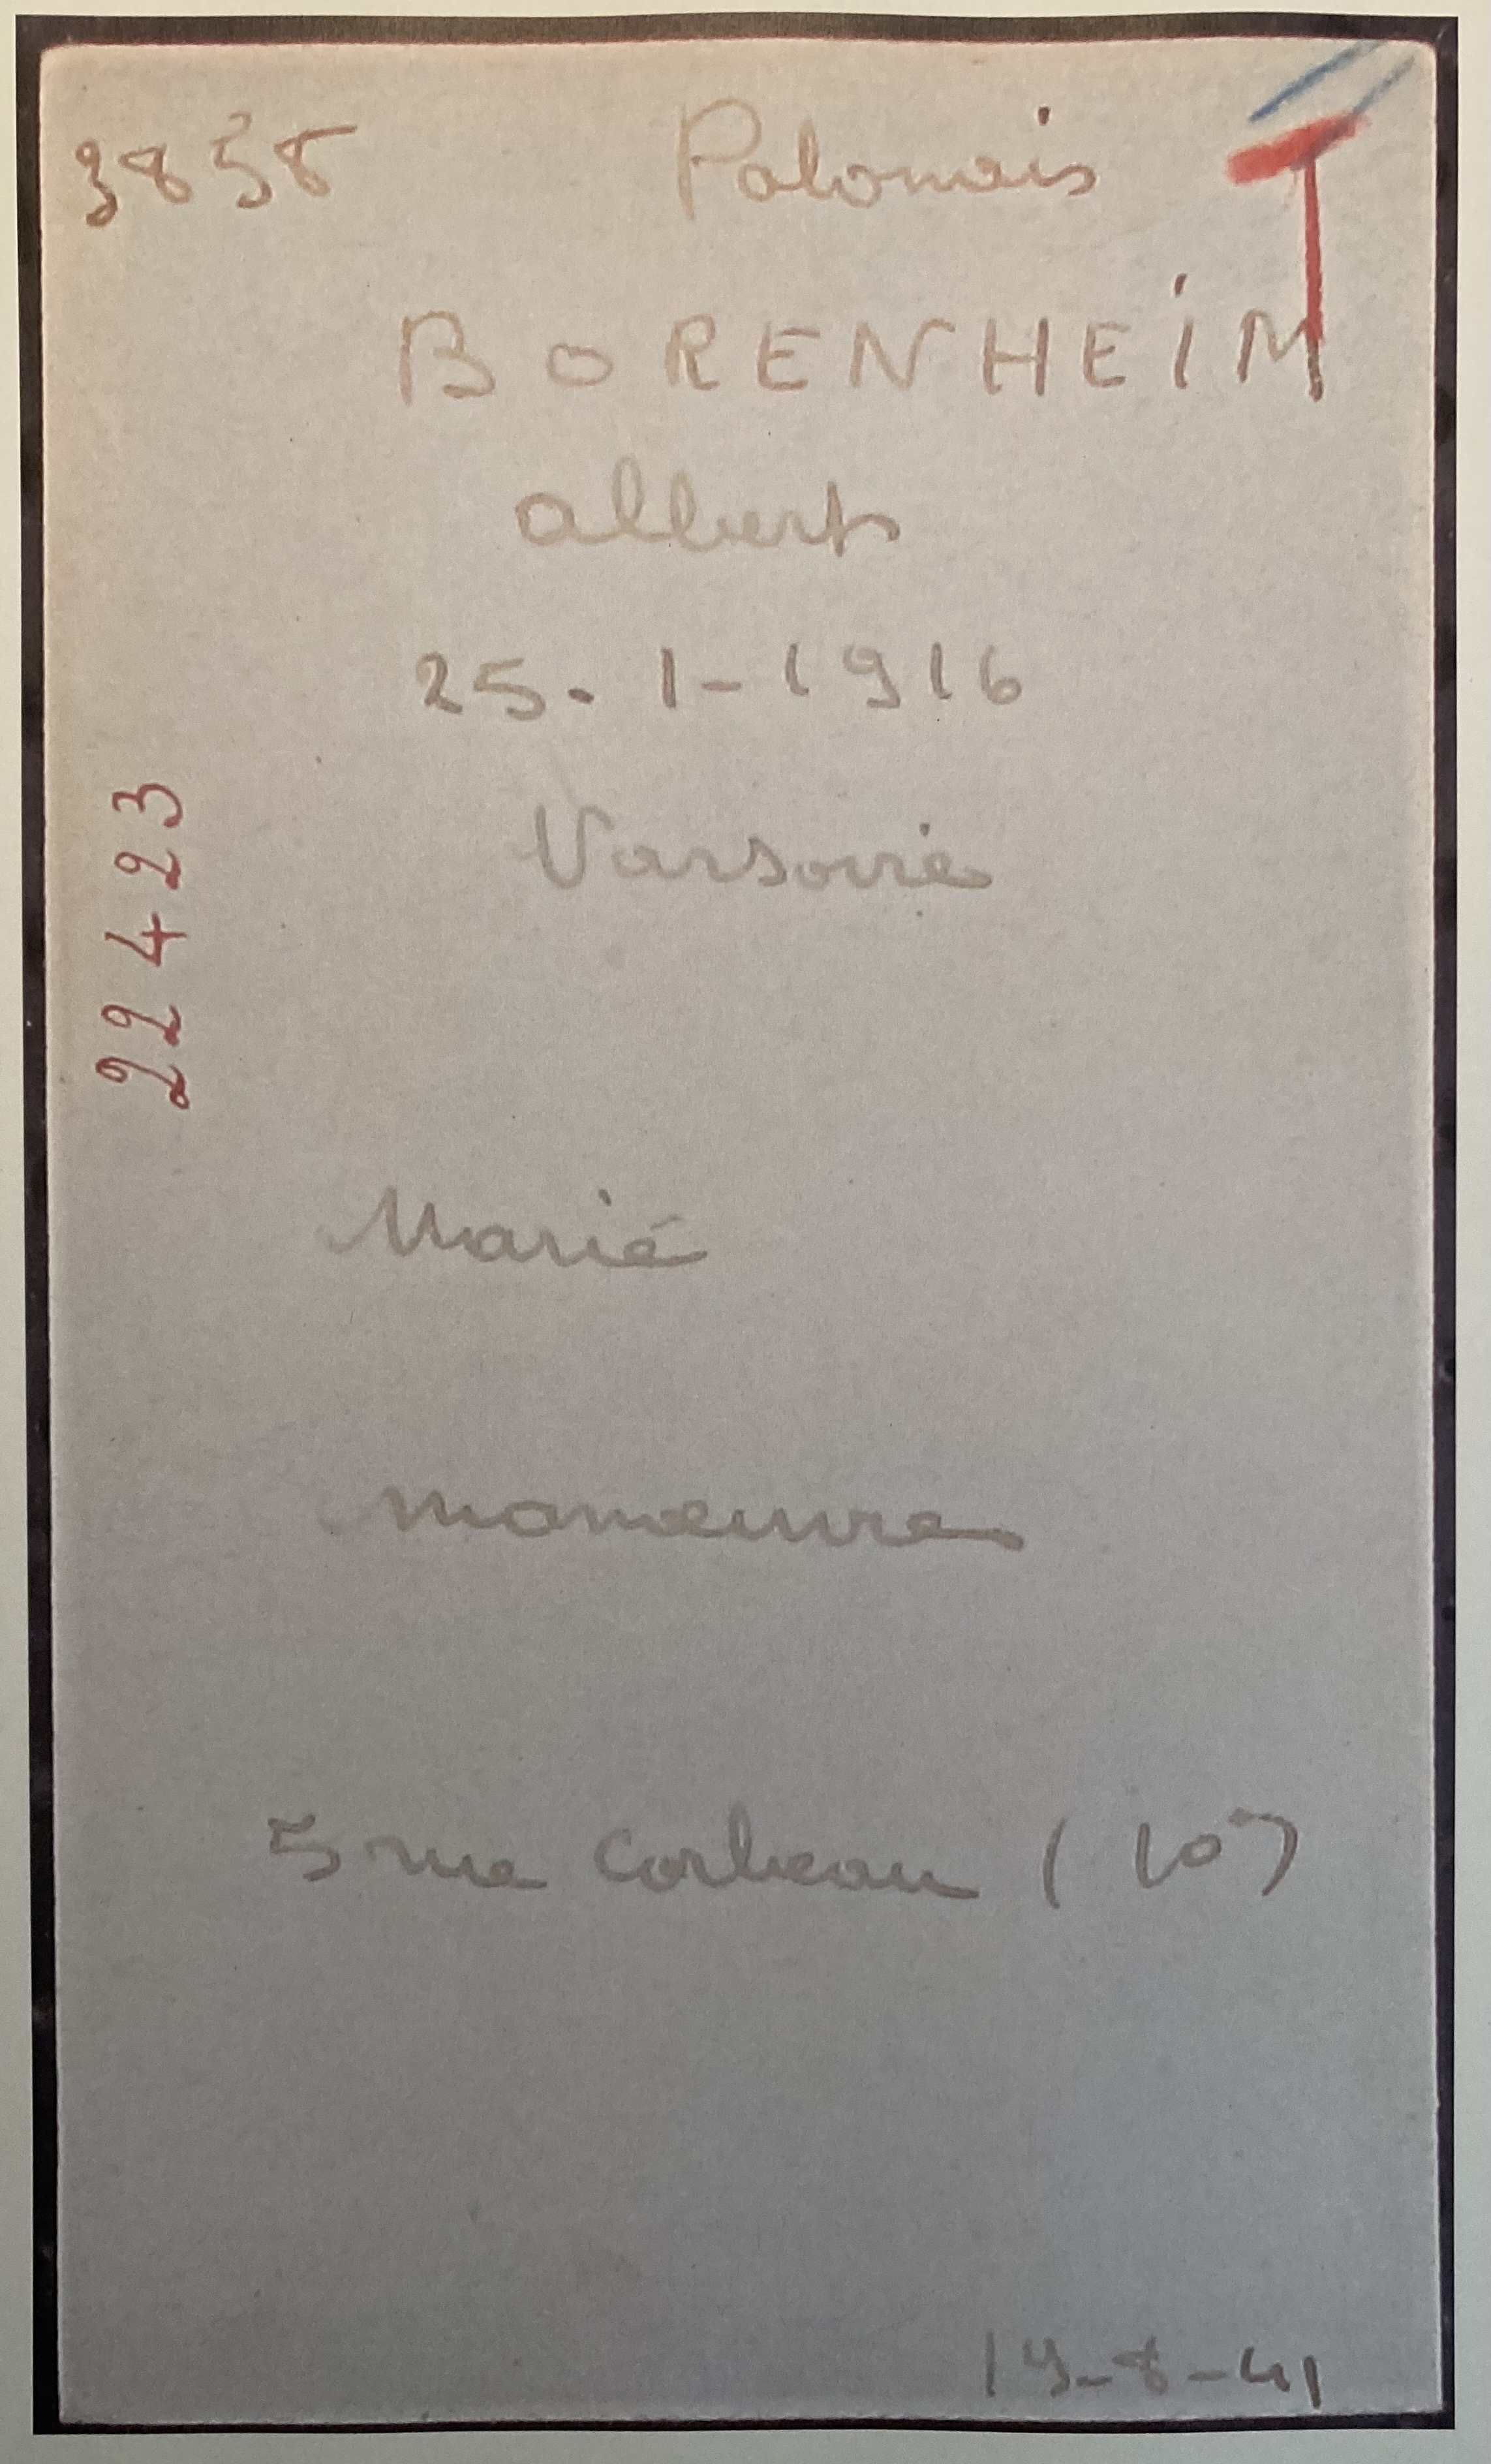 3858 Polonais T
BORENHEiM
albert
25.1-1916
Varsovie
22423
Marié
manœuvre
5 rue Corbeau (10°)
19-8-41